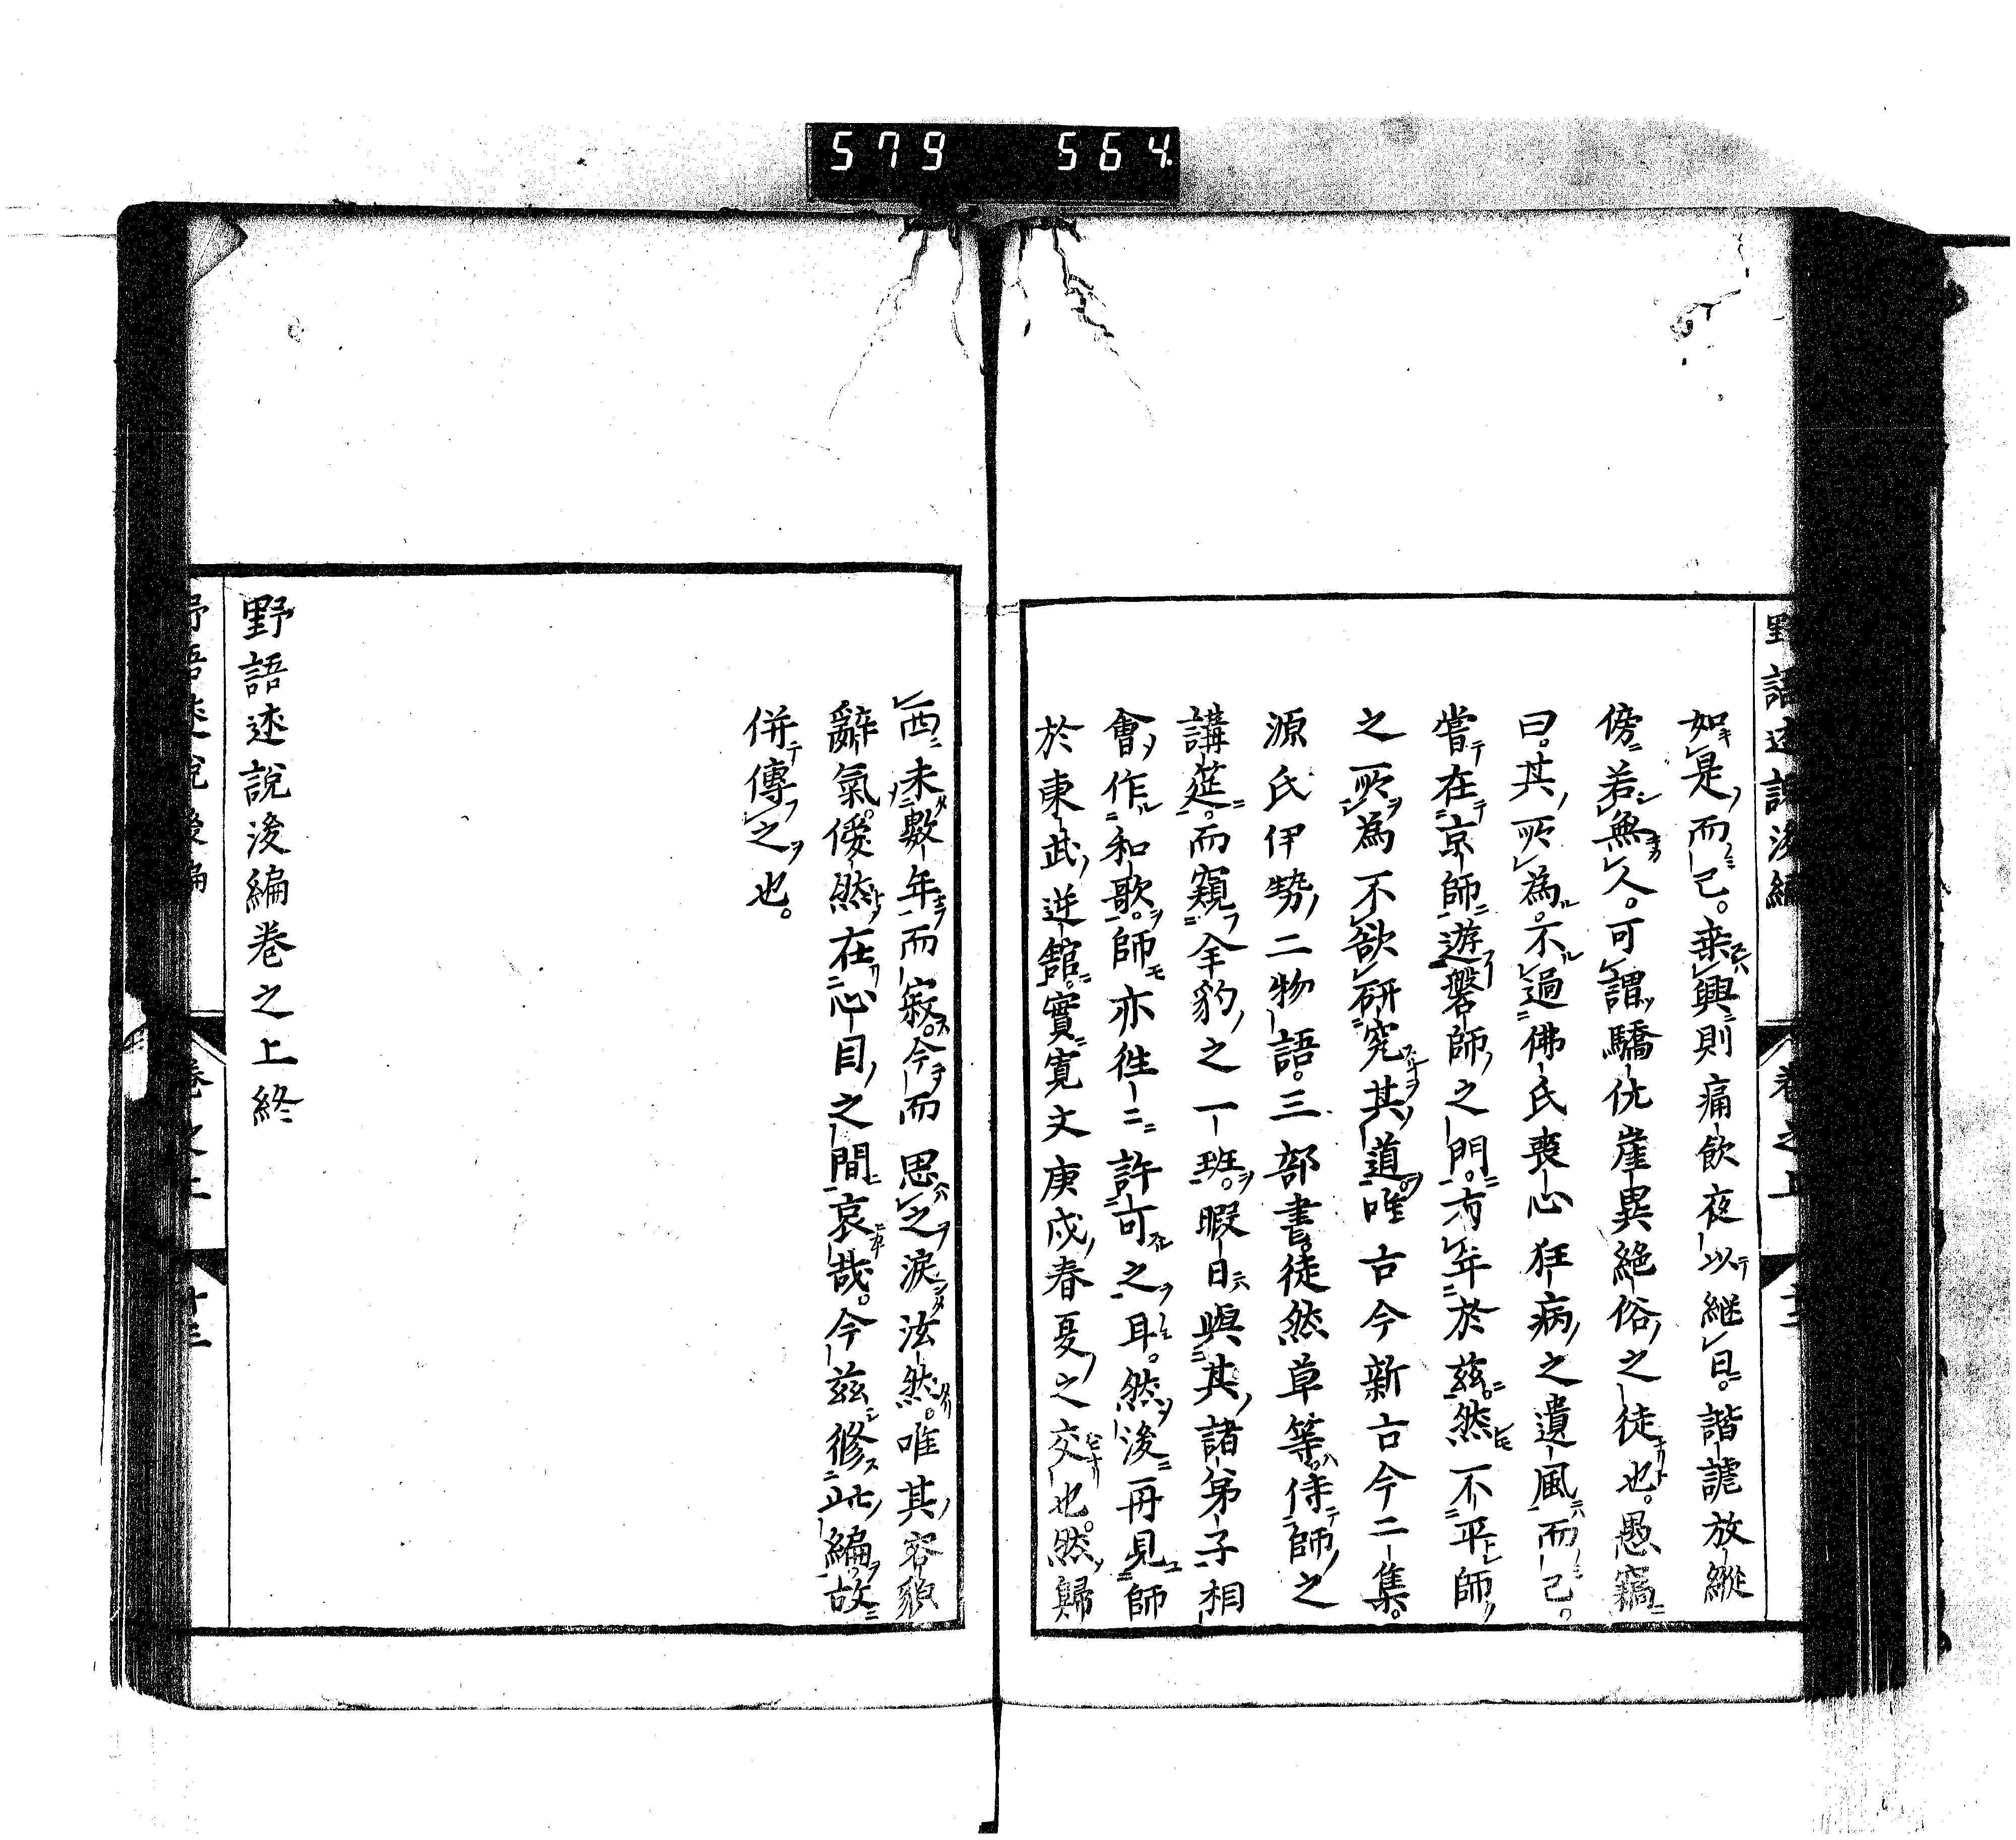 579 564
野語述説後編 卷之上 十三
如是而已。乗興則痛飲夜以継日。諧謔放縱
傍若無人。可謂驕伉崖異絶俗之徒也。愚竊
曰。其所為。不過佛氏喪心狂病之遺風而已。
嘗在京師遊磐師之門。有年於茲。然不平師
之所為不欲研究其道。唯古今新古今二集。
源氏伊勢二物語。三部書。徒然草等。侍師之
講筵。而窺全豹之一班。暇日與其諸弟子相
會作和歌。師亦往二許可之耳。然後再見師
於東武逆舘。實寛文庚戌春夏之交也。然歸
西未數年而寂。今而思之涙泫然。唯其容貌
辭氣。優然在心目之間哀哉。今茲修此編。故
併傳之也。
野語述說後編卷之上終
野語述說後編 卷之上 十三